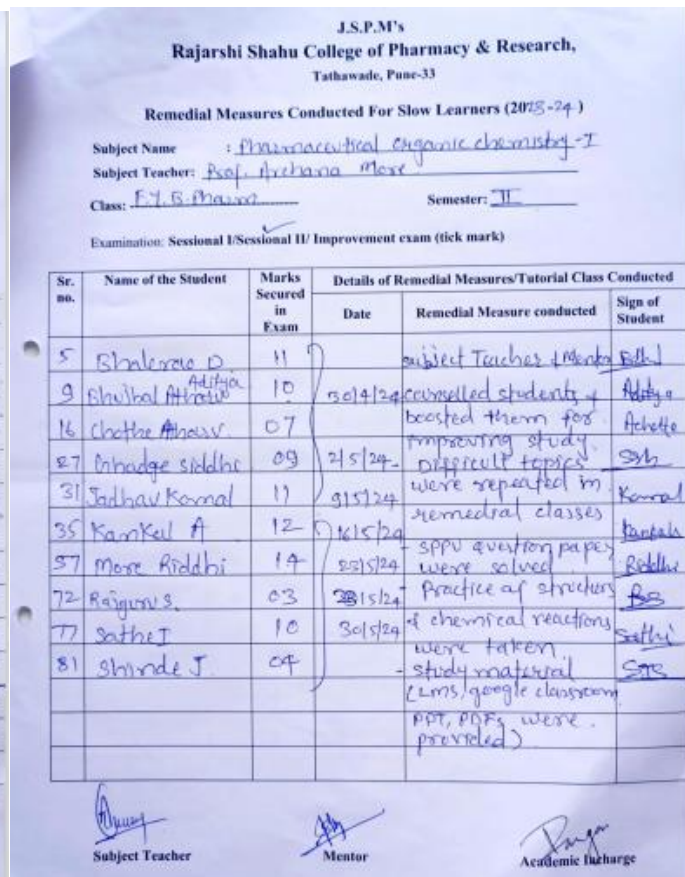 J.S.P.M's
Rajarshi Shahu College of Pharmacy & Research,
Tathawade, Pune-33
Remedial Measures Conducted For Slow Learners (2023-24)
Subject Name : Pharmaceutical Organic chemistry-I
Subject Teacher: Prof. Archana More
Class: F.Y. B. Pharm Semester: II
Examination: Sessional I/Sessional II/ Improvement exam (tick mark)
Sr. no. Name of the Student Marks Secured in Exam Details of Remedial Measures/Tutorial Class Conducted
Date Remedial Measure conducted Sign of Student
5 Bhalerao D. 11 subject Teacher & Mentor
9 Bhujbal Aditya 10 30/4/24 counselled students & Aditya
16 Chothe Atharv. 07 boosted them for
improving study.
27 Ghadge siddhi 09 2/5/24 - Difficult topics
31 Jadhav Komal 11 9/5/24 were repeated in Komal
remedial classes
35 Kankal A 12 16/5/24 Kankal
57 More Riddhi 14 - SPPU question paper were solved Riddhi
72 Raigure S. 03 Practice of structures
77 Sathe I 10 30/5/24 & chemical reactions Sathi
were taken
81 Shinde J 04 - study material
(LMS/google classroom
PPT, PDFs were
provided)
Subject Teacher Mentor Academic Incharge